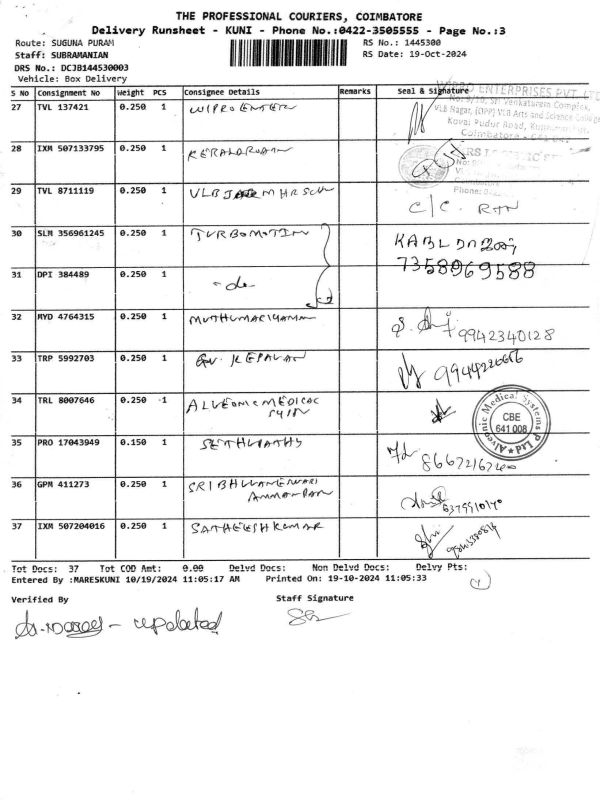 THE PROFESSIONAL COURIERS, COIMBATORE
Delivery Runsheet - KUNI - Phone No.:0422-3505555 - Page No.:3
Route: SUGUNA PURAM
RS No.: 1445300
Staff: SUBRAMANIAN
RS Date: 19-Oct-2024
DRS No.: DCJB144530003
Vehicle: Box Delivery
S No Consignment No Weight PCS Consignee Details Remarks Seal & Signature
27 TVL 137421 0.250 1 WIPRO ENTER
ENTERPRISES PVT. LTD
VLB Nagar, (OPP) VLB Arts and Science College
Kovai Pudur Road,
Coimbatore
28 IXM 507133795 0.250 1
29 TVL 8711119 0.250 1 VLB
Phone:
C/C. RTN
30 SLM 356961245 0.250 1 TURBOMOTIN
7358969588
31 DPI 384489 0.250 1 - do -
32 MYD 4764315 0.250 1 MUTHUMARIYAMMN
9942340128
33 TRP 5992703 0.250 1
34 TRL 8007646 0.250 1 ALVEONIC MEDICAL
Alveonic Medical Systems P Ltd
CBE
641 008
35 PRO 17043949 0.150 1 SETHUPATHY
36 GPM 411273 0.250 1 SRI BHUVANESWARI
37 IXM 507204016 0.250 1 SATHEESHKUMAR
Tot Docs: 37 Tot COD Amt: 0.00 Delvd Docs: Non Delvd Docs: Delvy Pts:
Entered By :MARESKUNI 10/19/2024 11:05:17 AM Printed On: 19-10-2024 11:05:33
Verified By Staff Signature
updated